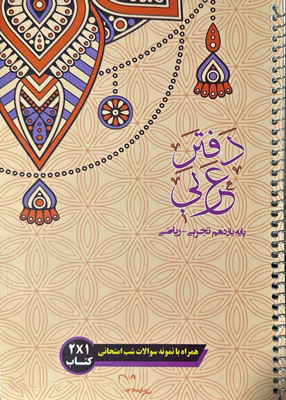 دفتر
عربی
پایه یازدهم تجربی - ریاضی
همراه با نمونه سوالات شب امتحانی
۲X۱
کتاب